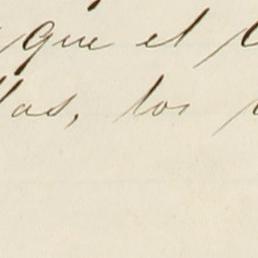 que el
las, los